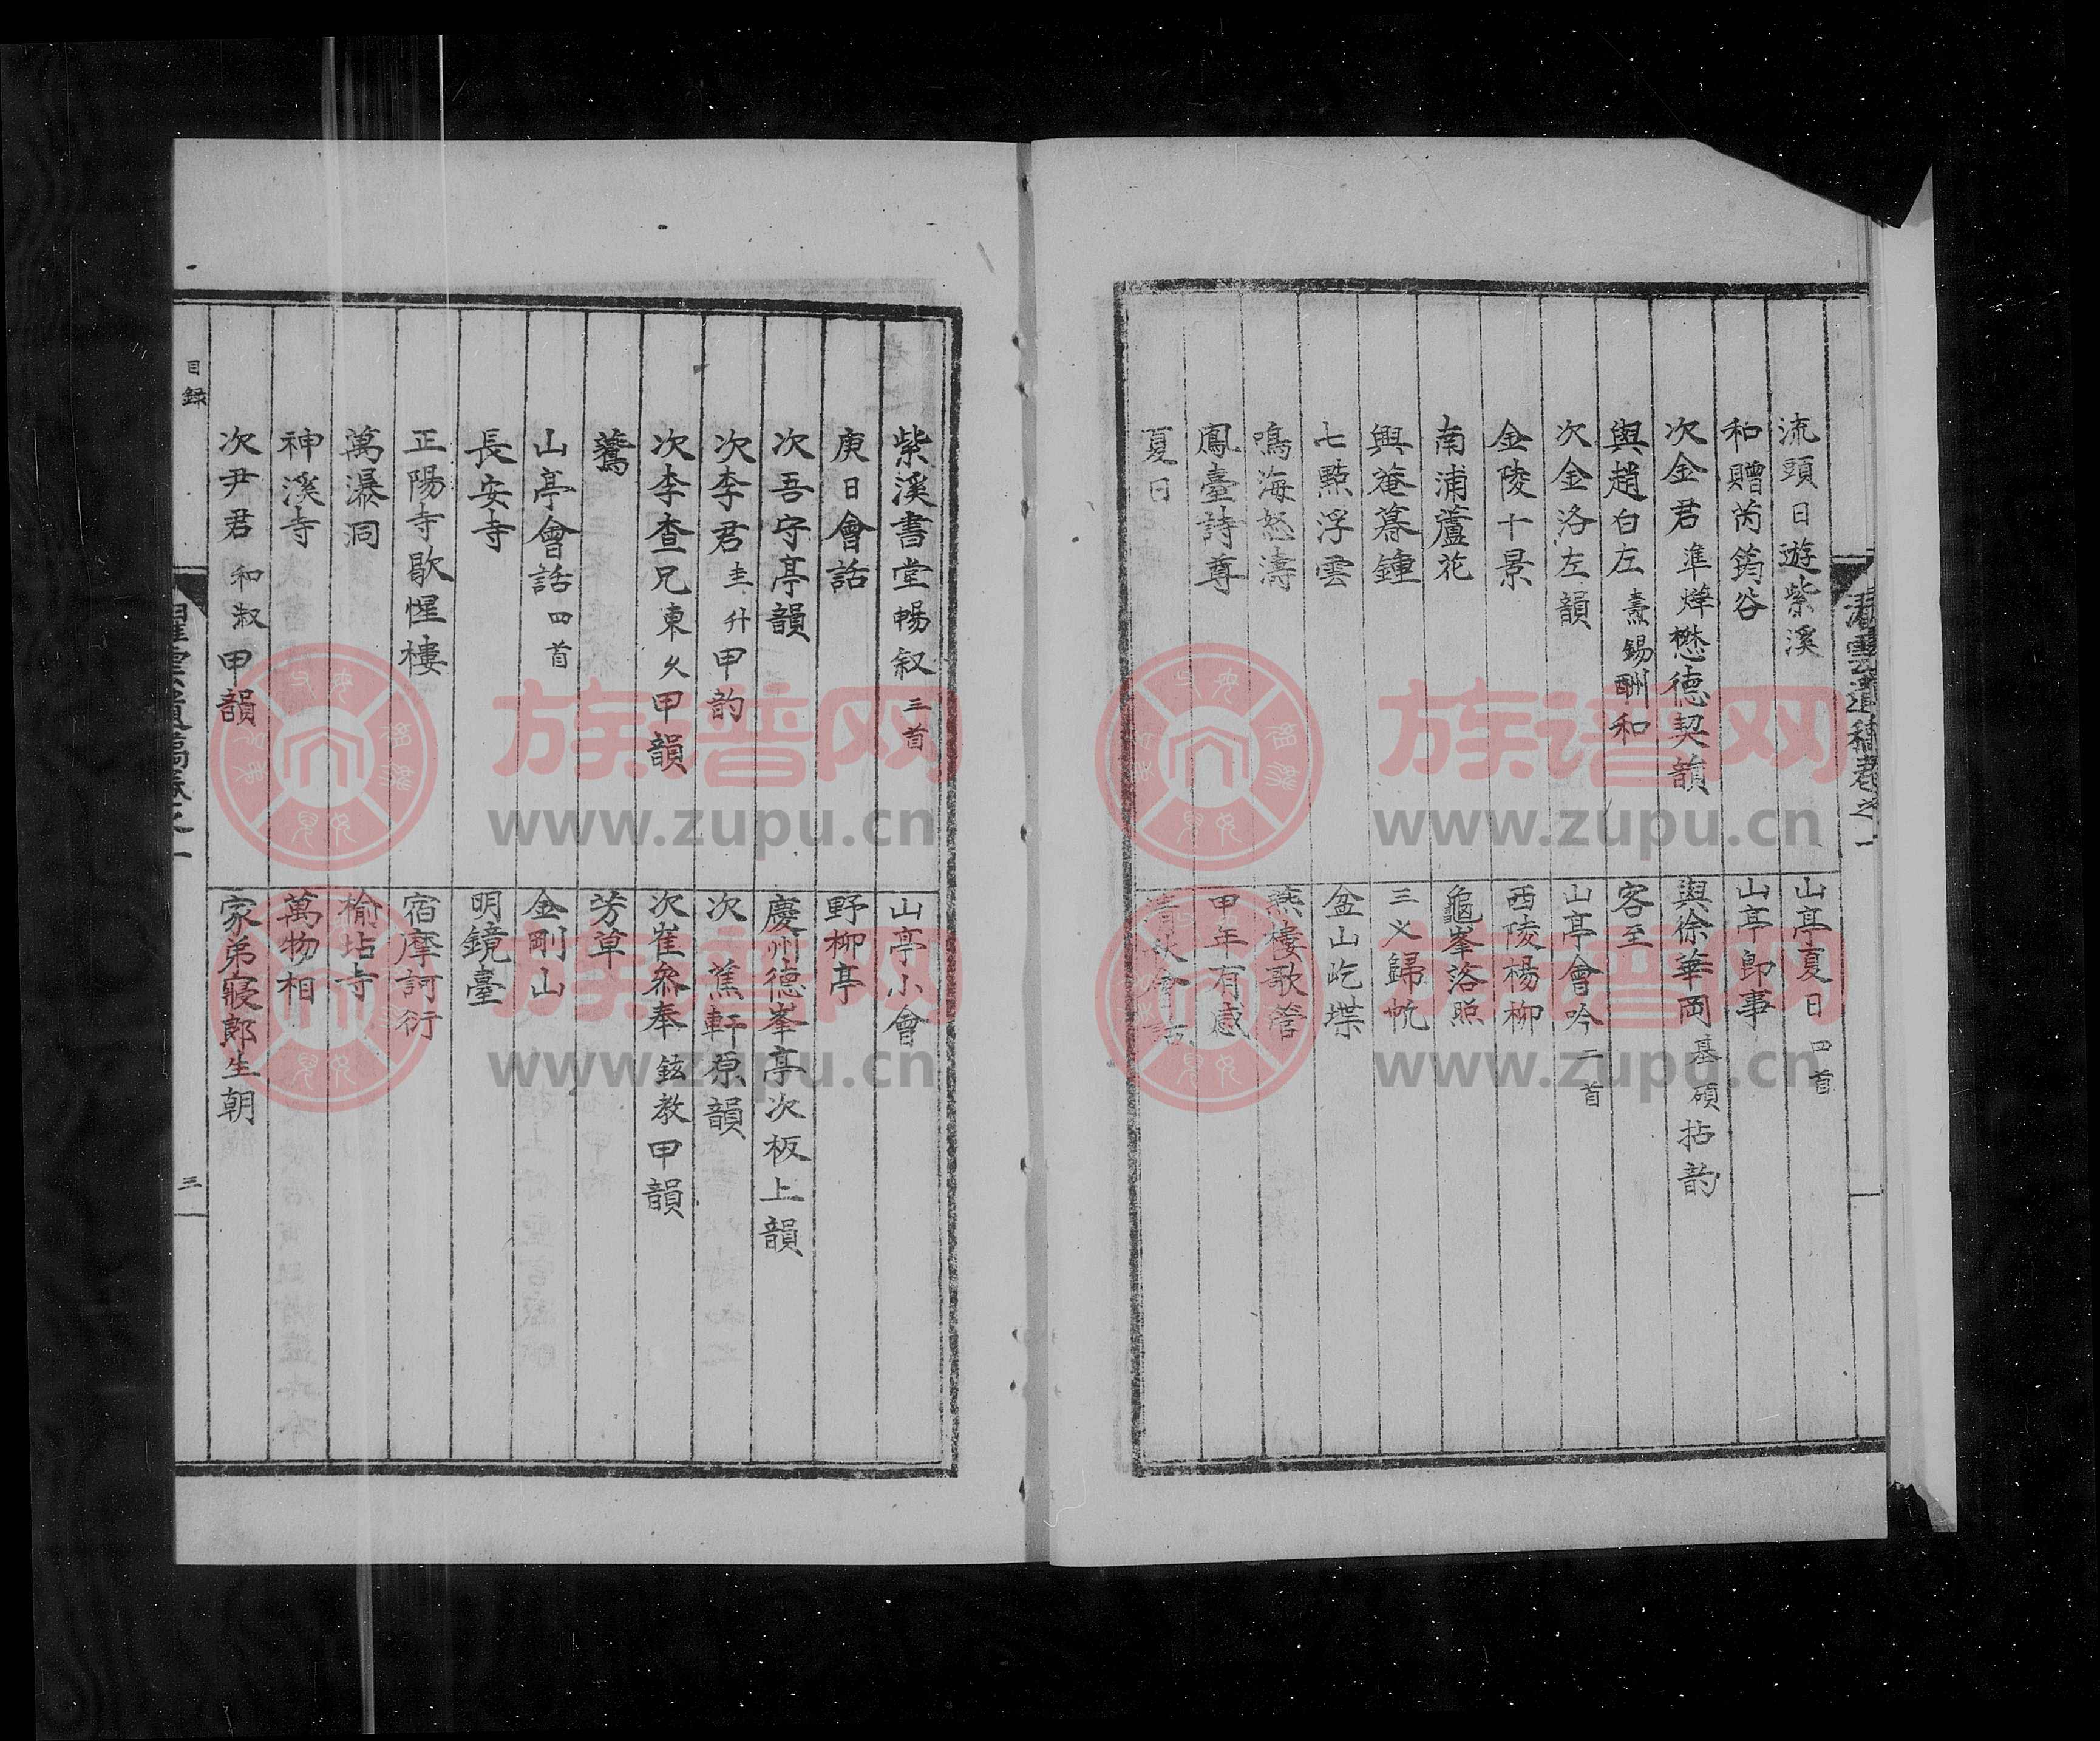 流頭日遊紫溪
山亭夏日 四首
和贈芮筠谷
山亭即事
次金君 準煒 懋德契韻
與徐華岡 基碩 拈韵
與趙白左 壽錫 酬和
客至
次金洛左韻
山亭會吟 二首
金陵十景
西陵楊柳
南浦蘆花
龜峯落照
興菴暮鍾
三乂歸帆
七點浮雲
盆山屹堞
鳴海怒濤
燕樓歌管
鳳臺詩尊
甲年有感
夏日
紫溪書堂暢叙 三首
山亭小會
庚日會話
野柳亭
次吾守亭韻
慶州德峯亭次板上韻
次李君 圭升 甲韵
次蕉軒原韻
次李查兄 東久 甲韻
次崔叅奉 鉉教 甲韻
鶯
芳草
山亭會話 四首
金剛山
長安寺
明鏡臺
正陽寺歇惺樓
宿摩訶衍
萬瀑洞
榆岾寺
神溪寺
萬物相
次尹君 和淑 甲韻
家弟寢郎生朝
目録
三
族谱网
www.zupu.cn
族谱网
www.zupu.cn
族谱网
www.zupu.cn
族谱网
www.zupu.cn